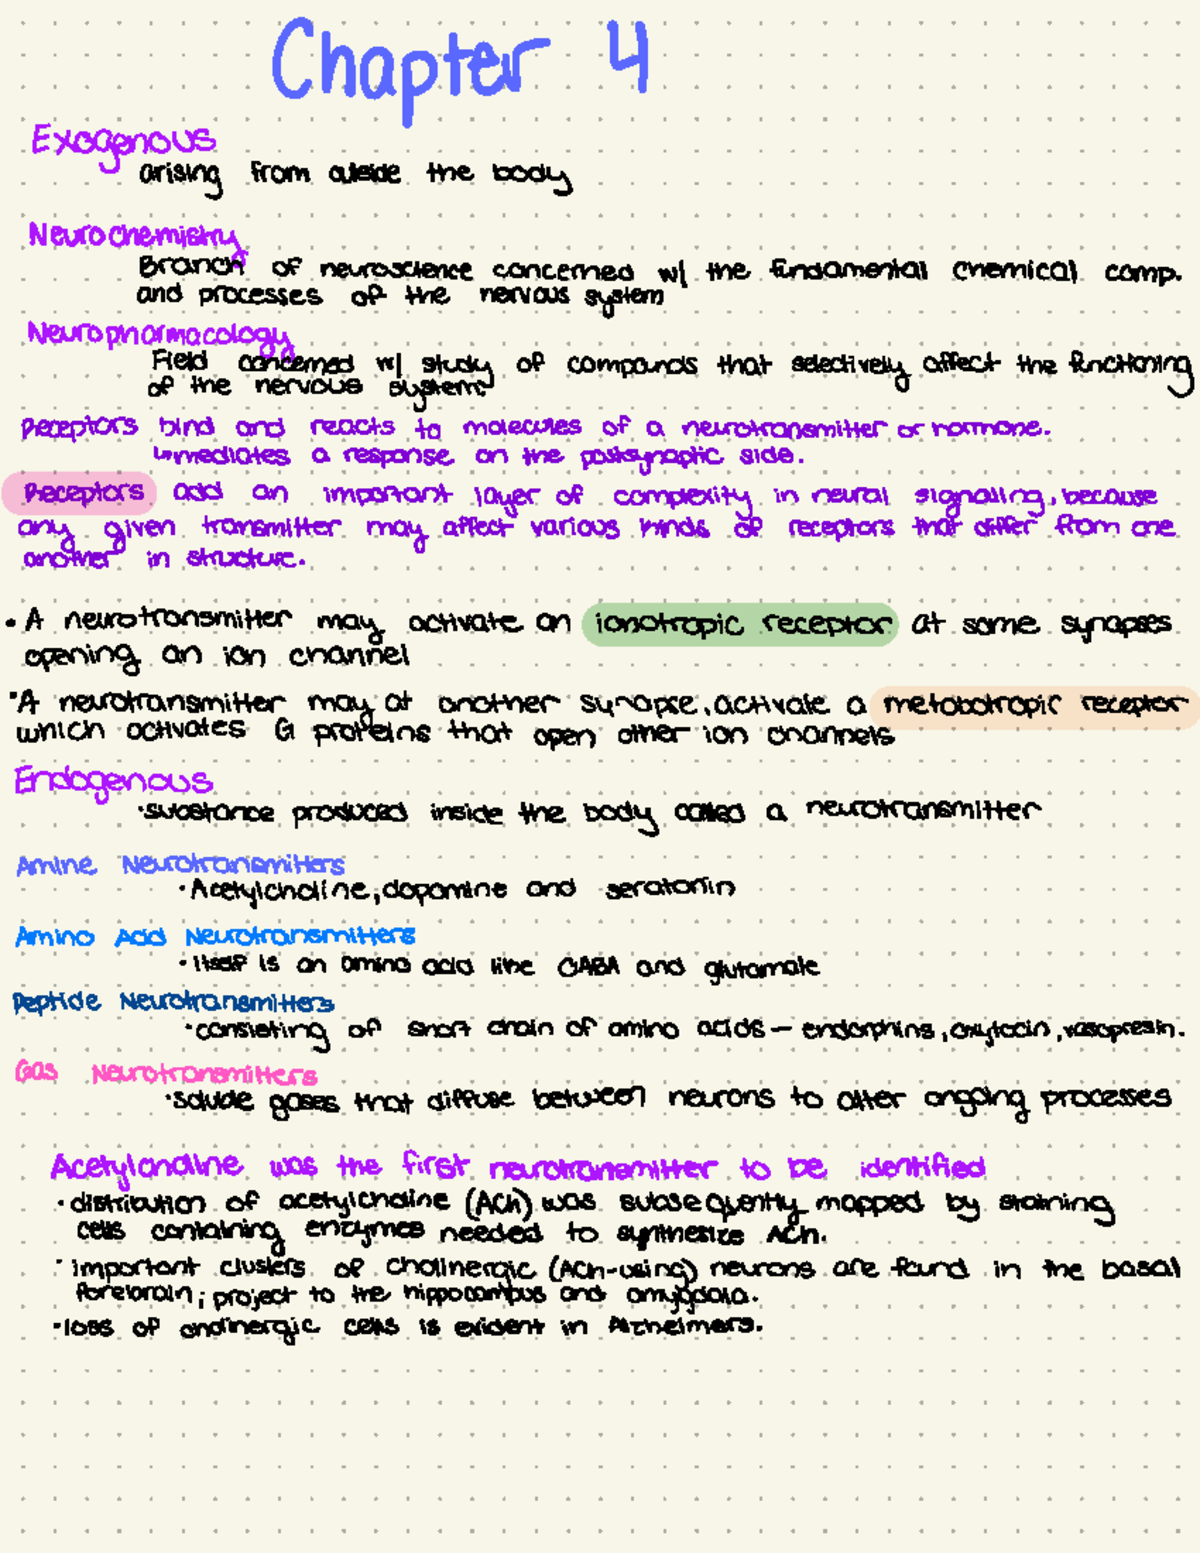 Chapter 4
Exogenous
arising from outside the body
Neurochemistry
Branch of neuroscience concerned w/ the fundamental chemical comp.
and processes of the nervous system
Neuropharmacology
Field concerned w/ study of compounds that selectively affect the functioning
of the nervous system.
Receptors bind and reacts to molecules of a neurotransmitter or hormone.
↳mediates a response on the postsynaptic side.
Receptors add an important layer of complexity in neural signaling, because
any given transmitter may affect various kinds of receptors that differ from one
another in structure.
• A neurotransmitter may activate an ionotropic receptor at some synapses
opening an ion channel
•A neurotransmitter may at another synapse, activate a metabotropic receptor
which activates G proteins that open other ion channels
Endogenous
•substance produced inside the body called a neurotransmitter
Amine Neurotransmitters
•Acetylcholine, dopamine and seratonin
Amino Acid Neurotransmitters
•itself is an amino acid like GABA and glutamate
Peptide Neurotransmitters
•consisting of short chain of amino acids - endorphins, oxytocin, vasopresin.
Gas Neurotransmitters
•soluble gases that diffuse between neurons to alter ongoing processes
Acetylcholine was the first neurotransmitter to be identified
• distribution of acetylcholine (ACh) was subsequently mapped by staining
cells containing enzymes needed to synthesize ACh.
• important clusters of cholinergic (ACh-using) neurons are found in the basal
forebrain; project to the hippocampus and amygdala.
•loss of cholinergic cells is evident in Alzheimers.